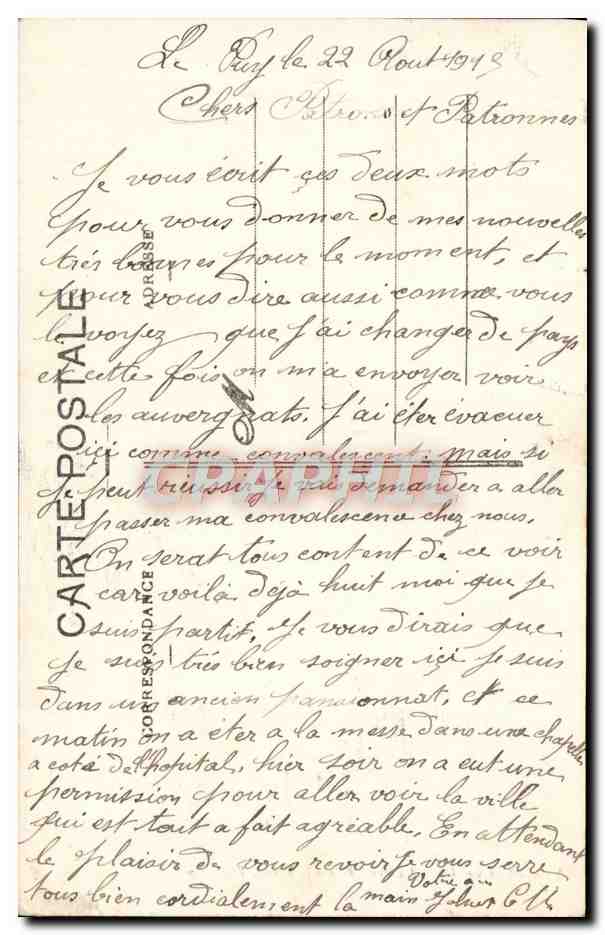 Le Puy le 22 Aout 191
Chers Patrons et Patronnes
Je vous écrit çes deux mots
pour vous donner de mes nouvelles
très bonnes pour le moment, et
pour vous dire aussi comme vous
le voyez que j'ai changer de pays
et cette fois on m'a envoyer voir
les auvergnats. J'ai éter évacuer
içi comme convalescent, mais si
je peut réussir je vais demander a aller
passer ma convalescence chez nous.
On serat tous content de ce voir
car voilà déjà huit moi que je
suis partit. Je vous dirais que
je suis très bien soigner içi je suis
dans un ancien pansionnat, et ce
matin on a éter a la messe dans une chapelle
a coté de l'hopital, hier soir on a eut une
permission pour aller voir la ville
qui est tout a fait agréable. En attendant
le plaisir de vous revoir je vous serre
tous bien cordialement la main Votre
CARTE POSTALE
CORRESPONDANCE
ADRESSE
M
CPAPHIL